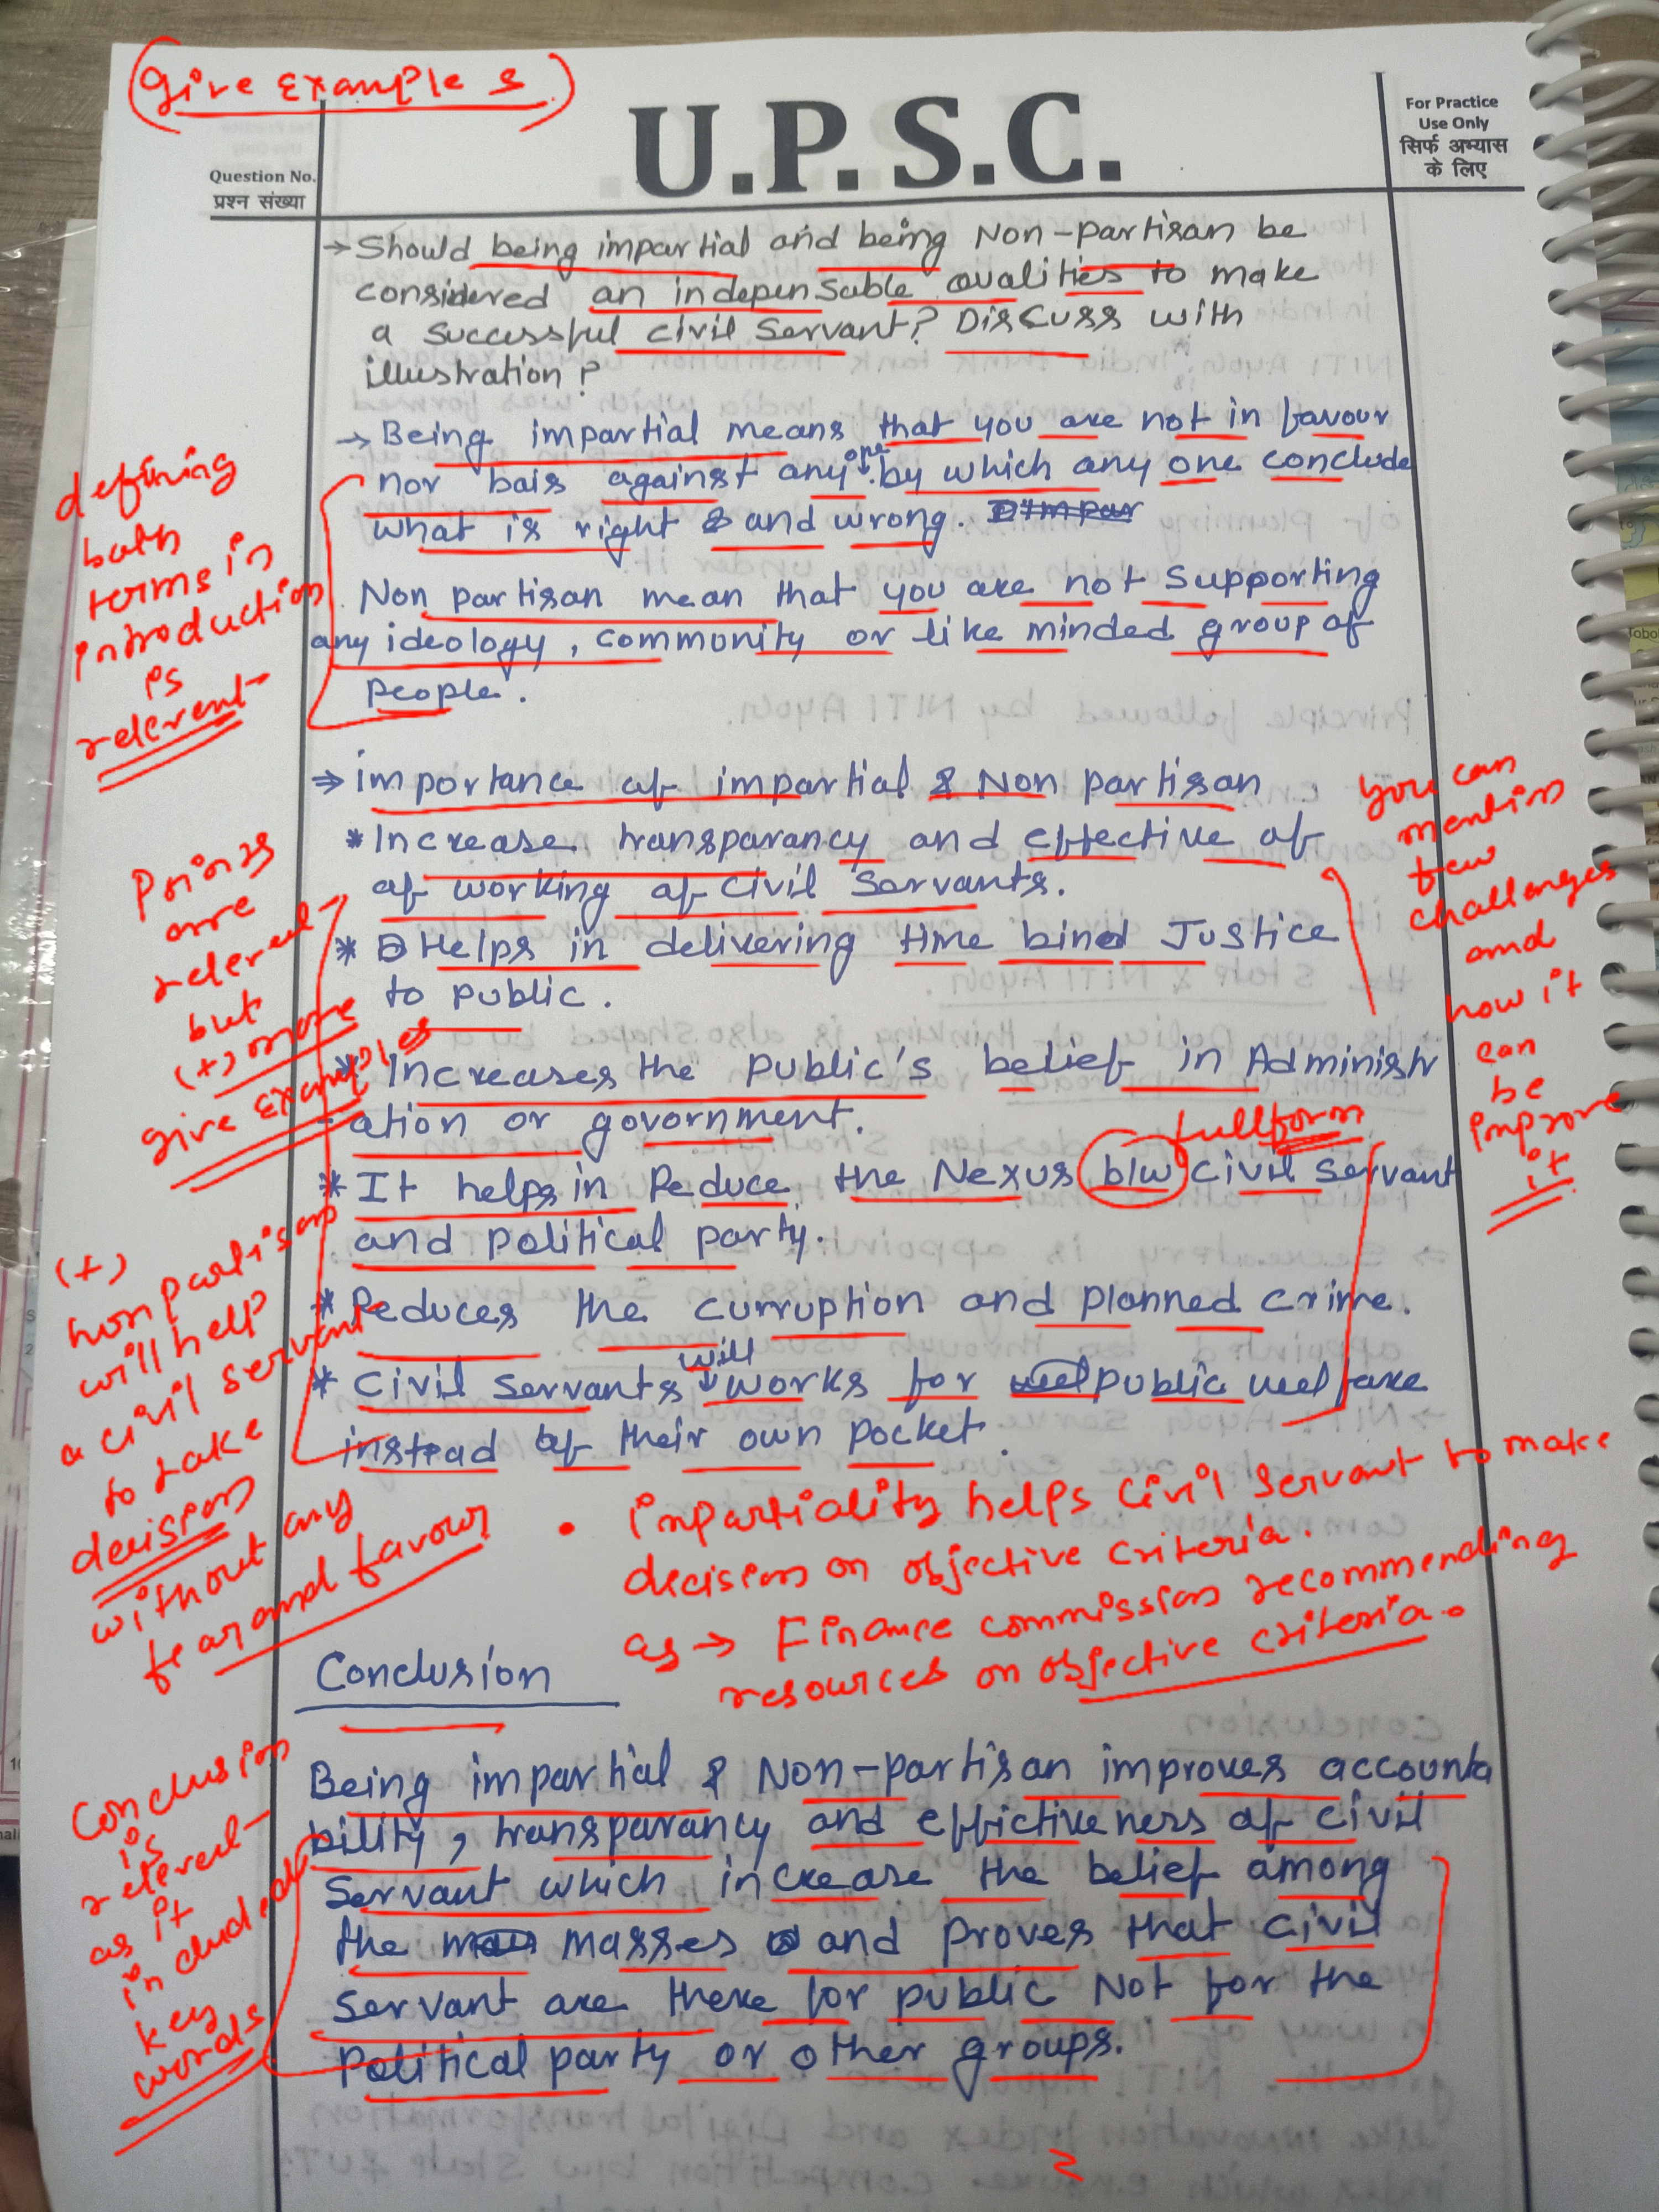 Give Examples
U.P.S.C.
For Practice
Use Only
सिर्फ अभ्यास
के लिए
Question No.
प्रश्न संख्या
→ Should being impartial and being Non-partisan be
considered an indepensable qualities to make
a successful civil servant? Discuss with
illustration?
→ Being impartial means that you are not in favour
nor bais against any one by which any one conclude
what is right & and wrong.
Non partisan mean that you are not supporting
any ideology, community or like minded group of
people.
defining
both
terms in
introduction
is
relevent
⇒ importance of impartial & Non partisan
* Increase transparancy and effective of
of working of civil servants.
* Helps in delivering time bined Justice
to public.
* Increases the public's belief in Administr
-ation or government.
* It helps in Reduce the Nexus b/w civil servant
and political party.
fullform
* Reduces the curruption and planned crime.
* Civil servants will works for public welfare
instead of their own pocket.
Points
are
relevent
but
(+) more
give Examples
you can
mention
few
challenges
and
how it
can
be
improve
it
(+)
non partison
will help
a civil servant
to take
decision
without any
fear and favour
• impartiality helps civil servant to make
decision on objective criteria.
as → Finance commission recommending
resources on objective criteria.
Conclusion
Being impartial & Non-partisan improves accounta
bility, transparancy and effictiveness of civil
servant which increase the belief among
the masses and proves that civil
servant are there for public Not for the
political party or other groups.
Conclusion
is
relevent
as it
included
key
words